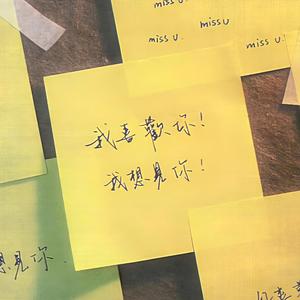 miss u
miss u
miss u.
miss u.
miss u.
我喜歡你!
我想見你!
想見你.